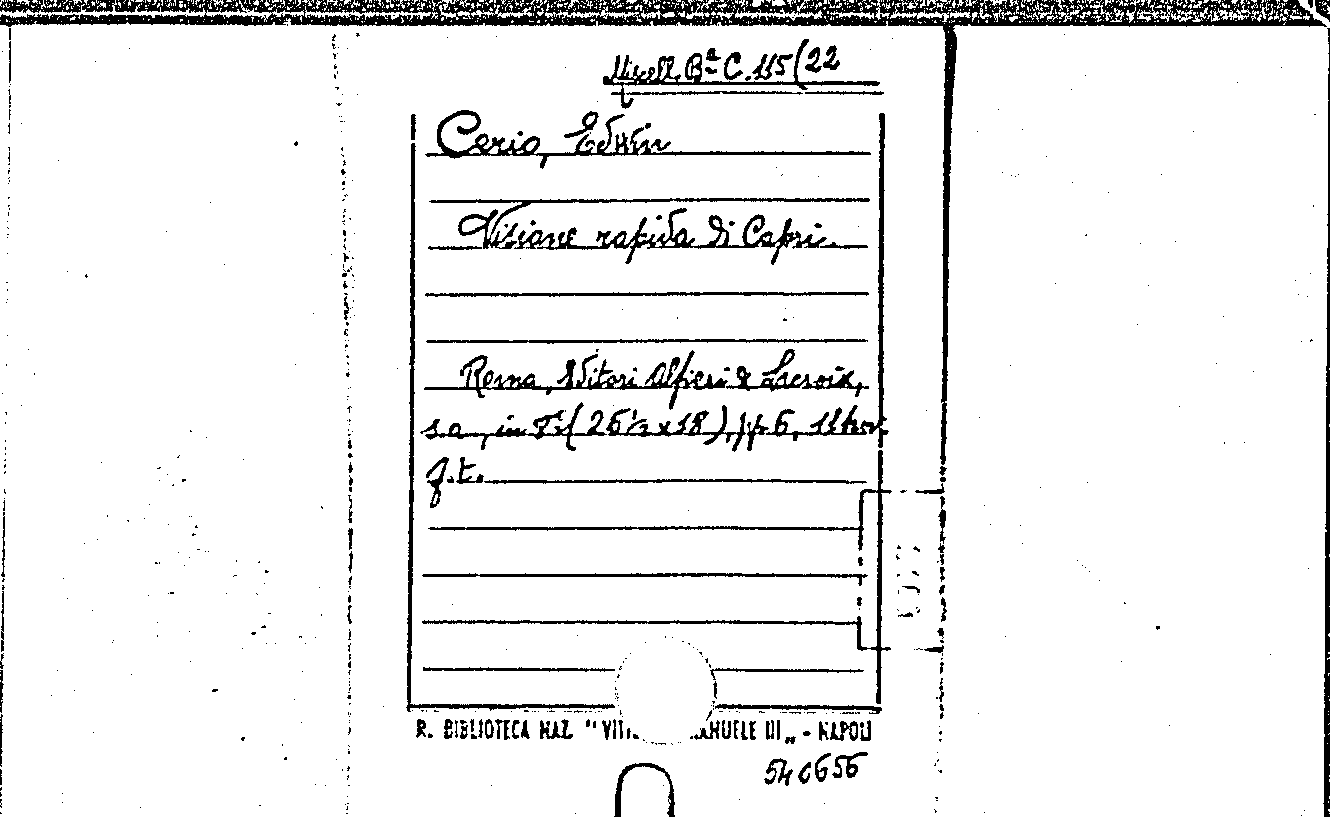 Miscell. Bª C. 115(22
Cerio, Edwin
Visione rapida di Capri.
Roma, Editori Alfieri & Lacroix,
s.a., in 8º(26½x18), pp. 6, 11 tav.
f.t.
R. BIBLIOTECA NAZ. " VITT EMANUELE III „ - NAPOLI
540656